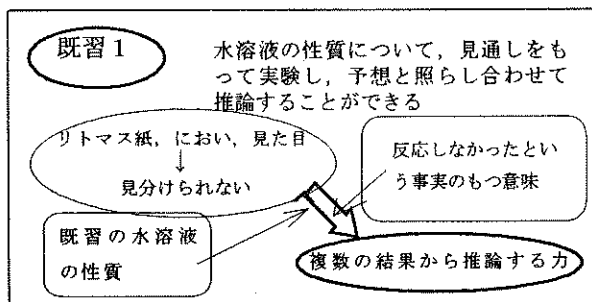 既習1
水溶液の性質について，見通しをも
って実験し，予想と照らし合わせて
推論することができる
リトマス紙，におい，見た目
↓
見分けられない
反応しなかったとい
う事実のもつ意味
既習の水溶液
の性質
複数の結果から推論する力